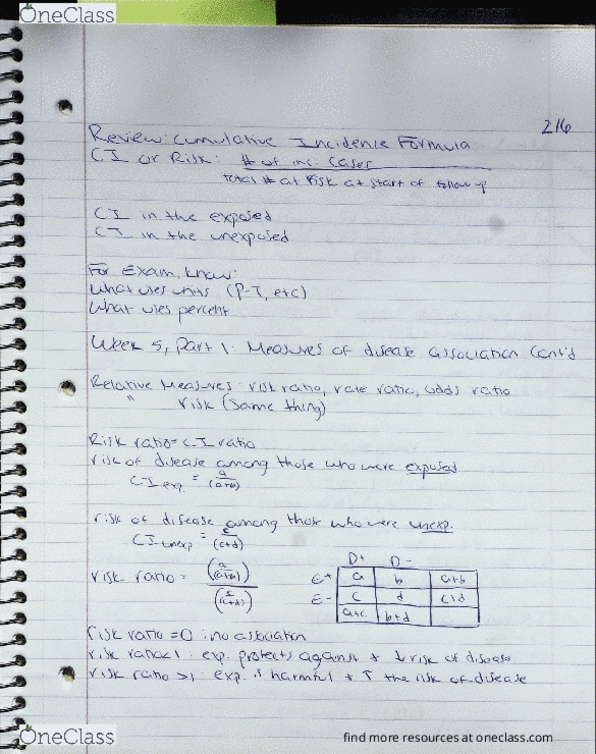 OneClass
216
Review: Cumulative Incidence Formula
CI or Risk: # of inc. Cases
total # at risk at start of follow up
CI in the exposed
CI in the unexposed
For Exam, know:
What uses units (P-T, etc)
What uses percent
Week 5, Part 1: Measures of disease association Cont'd
Relative Measures: risk ratio, rate ratio, odds ratio
" risk (same thing)
Risk ratio = CI ratio
risk of disease among those who were exposed
CI exp = a/(a+b)
risk of disease among those who were unexp.
CI unexp = c/(c+d)
D+ D-
risk ratio = (a/(a+b)) / (c/(c+d))
E+ a b a+b
E- c d c+d
a+c b+d
risk ratio = 0 : no association
risk ratio < 1 : exp. protects against + ↓ risk of disease
risk ratio > 1 : exp. is harmful + ↑ the risk of disease
OneClass
find more resources at oneclass.com